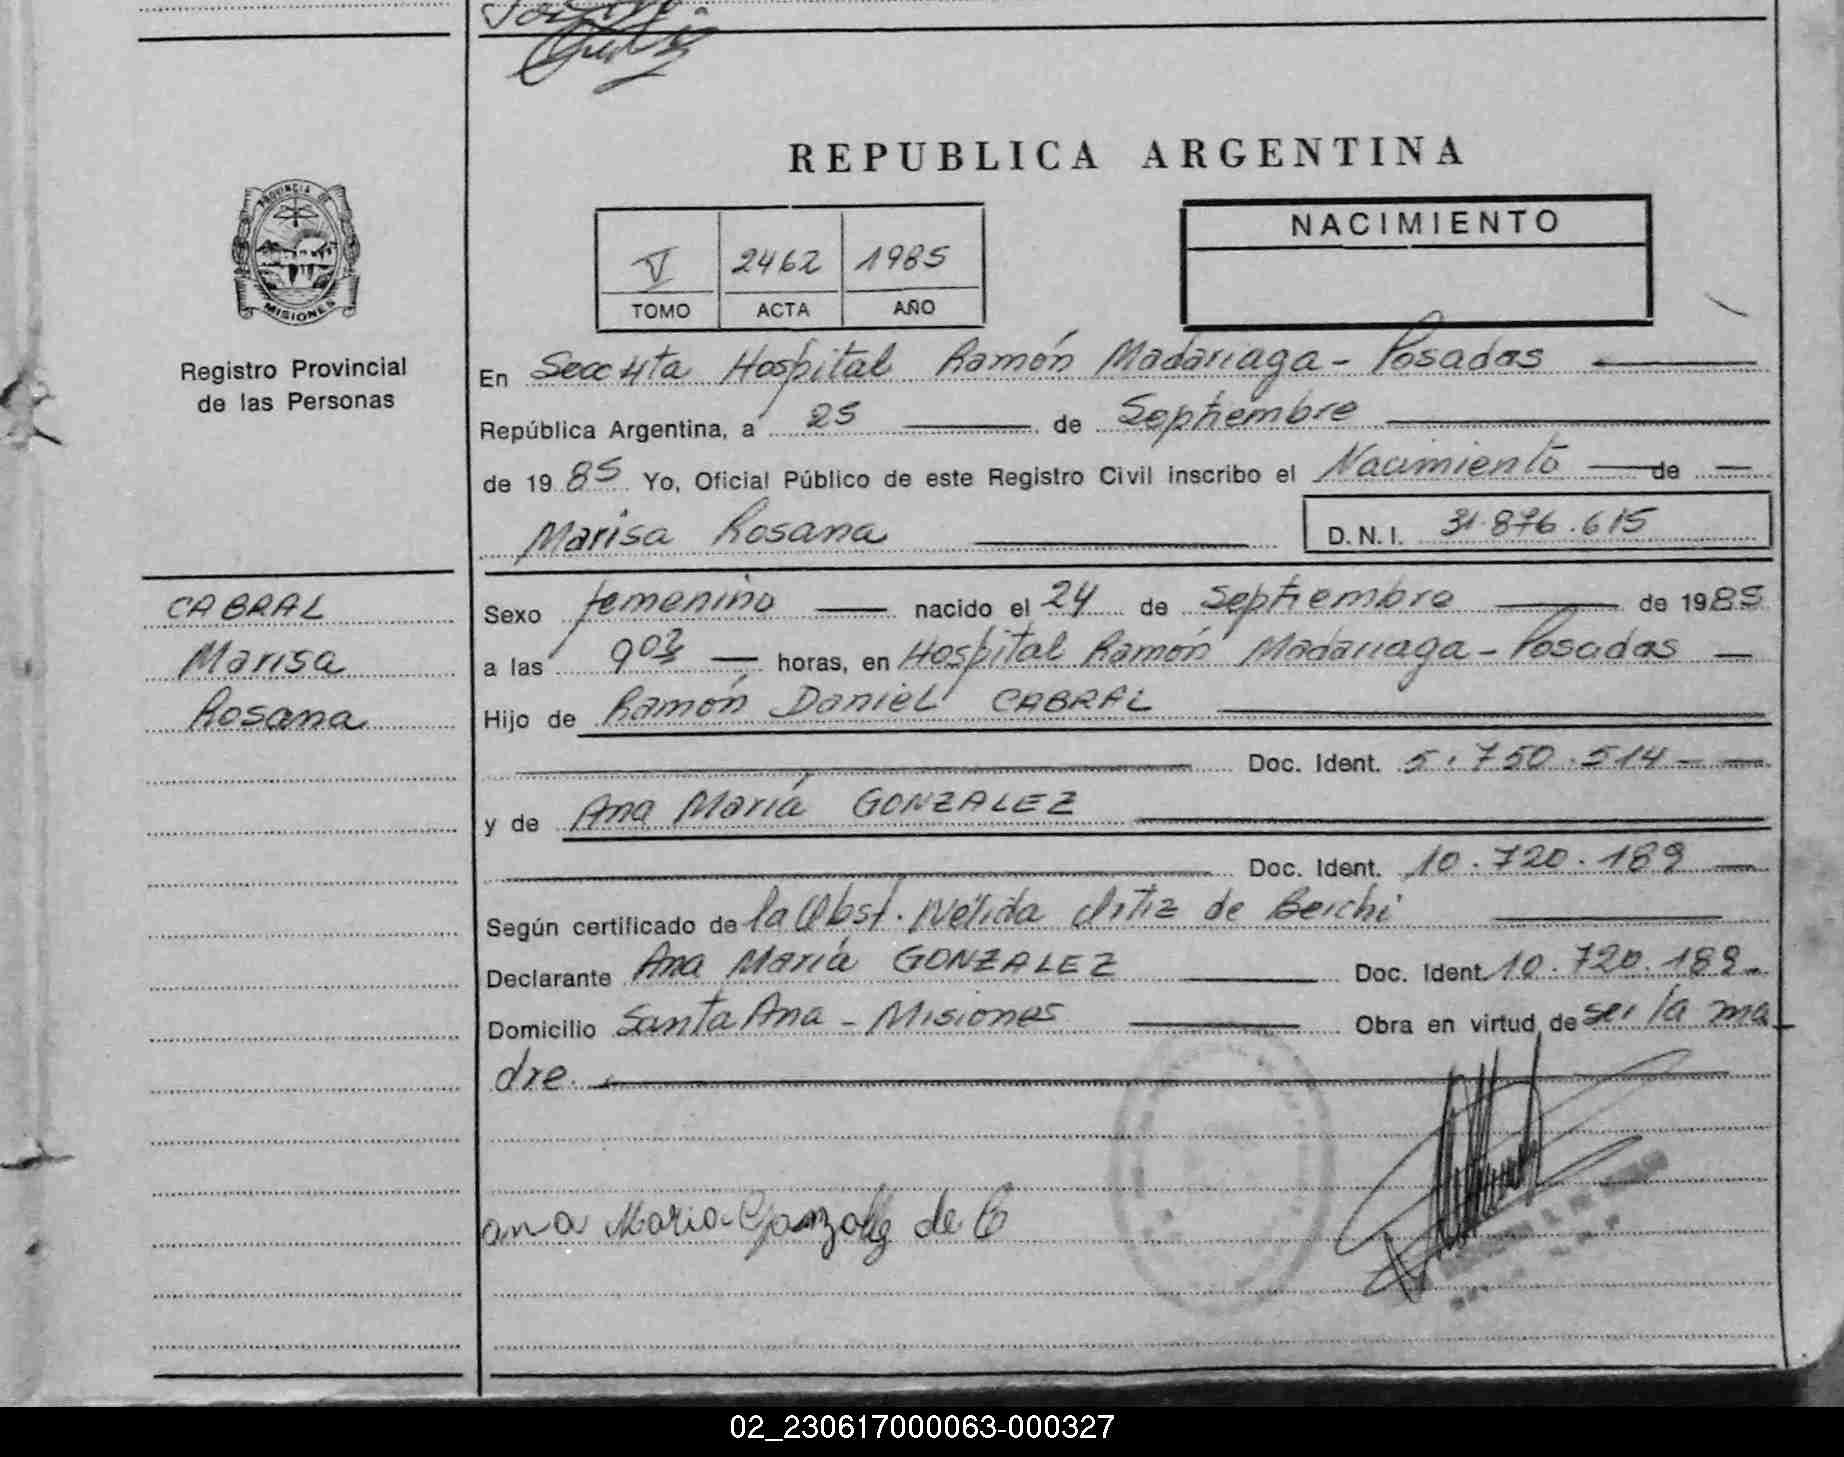 REPUBLICA ARGENTINA
PROVINCIA DE
MISIONES
Registro Provincial
de las Personas
V 2462 1985
TOMO ACTA AÑO
NACIMIENTO
En Secc 4ta Hospital Ramón Madariaga - Posadas
República Argentina, a 25 de Septiembre
de 1985 Yo, Oficial Público de este Registro Civil inscribo el Nacimiento de
Marisa Rosana D.N.I. 31.876.615
CABRAL
Marisa
Rosana
Sexo femenino nacido el 24 de Septiembre de 1985
a las horas, en Hospital Ramón Madariaga - Posadas
Hijo de Ramón Daniel CABRAL
Doc. Ident. 5.750.514
y de Ana María GONZALEZ
Doc. Ident. 10.720.189
Según certificado de la Obst. Nélida Ortiz de
Declarante Ana María GONZALEZ Doc. Ident. 10.720.189
Domicilio Santa Ana - Misiones Obra en virtud de ser la ma
dre.
ana Maria Gonzalez de C
02_230617000063-000327